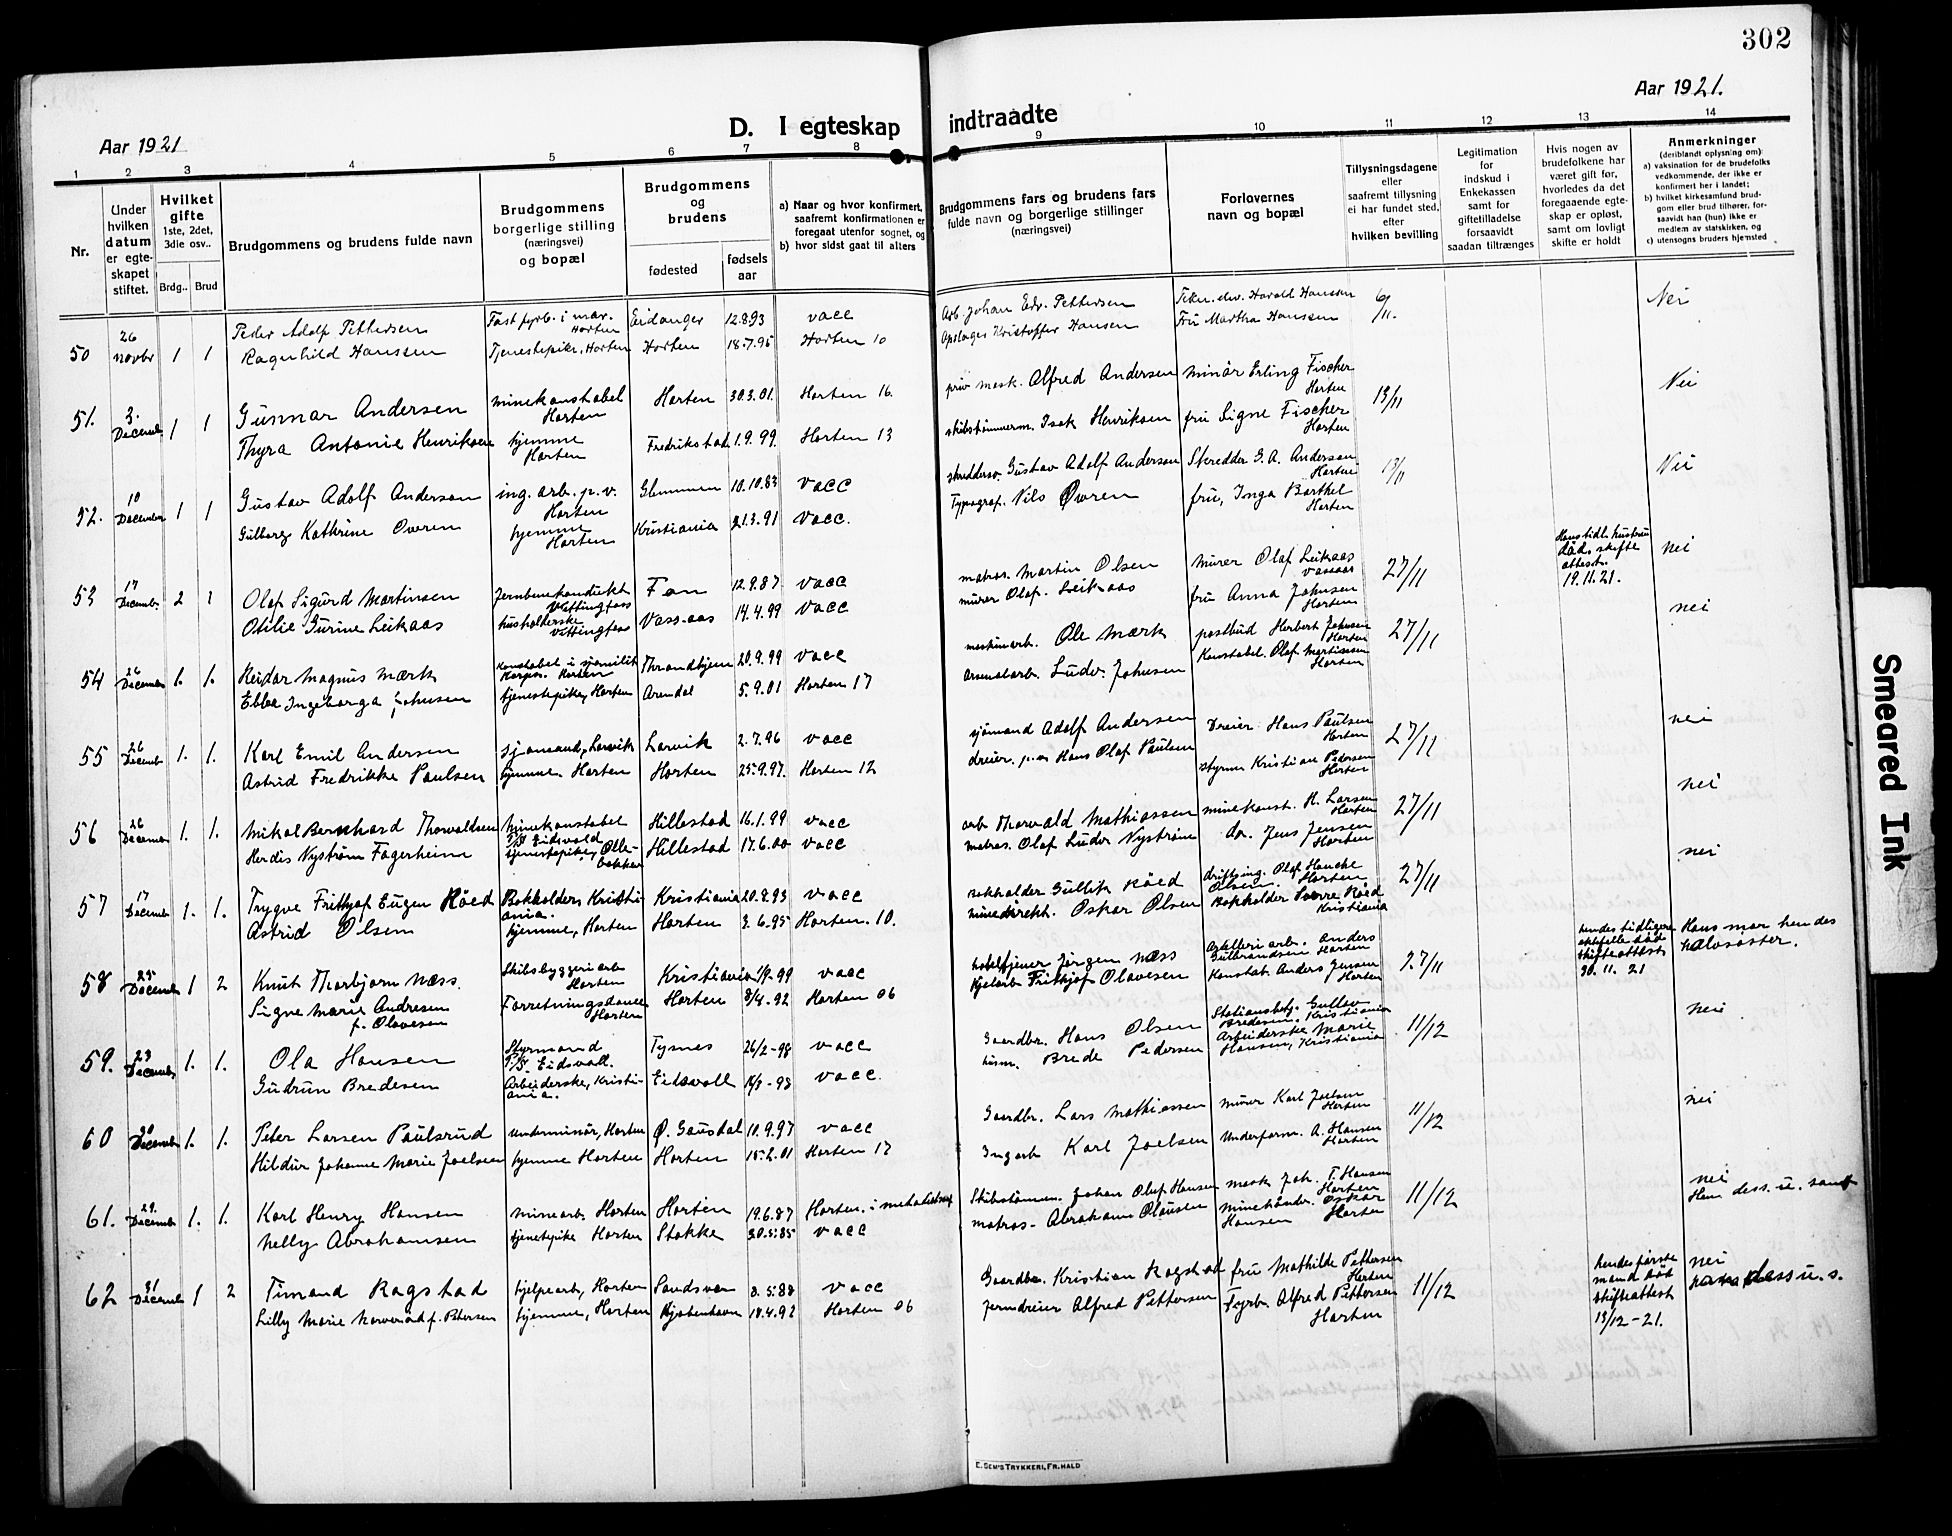 302
Aar 1921.
Aar 1921
D. I egteskap indtraadte
1 2 3 4 5 6 7 8 9 10 11 12 13 14
Nr.
Under hvilken datum er egteskapet stiftet.
Hvilket gifte 1ste, 2det, 3die osv..
Brdg.. Brud
Brudgommens og brudens fulde navn
Brudgommens borgerlige stilling (næringsvei) og bopæl
Brudgommens og brudens
fødested
fødselsaar
a) Naar og hvor konfirmert, saafremt konfirmationen er foregaat utenfor sognet, og
b) hvor sidst gaat til alters
Brudgommens fars og brudens fars fulde navn og borgerlige stillinger (næringsvei)
Forlovernes navn og bopæl
Tillysningsdagene eller saafremt tillysning ei har fundet sted, efter hvilken bevilling
Legitimation for indskud i Enkekassen samt for giftetilladelse forsaavidt saadan tiltrænges
Hvis nogen av brudefolkene har været gift før, hvorledes da det foregaaende egteskap er opløst, samt om lovligt skifte er holdt
Anmerkninger (deriblandt oplysning om):
a) vaksination for de brudefolks vedkommende, der ikke er konfirmert her i landet;
b) hvilket kirkesamfund brudgom eller brud tilhører, forsaavidt han (hun) ikke er medlem av statskirken, og
c) utensogns bruders hjemsted
50 26 novbr 1 1 Peder Adolf Pettersen Fast fyrb. i mar. Horten Eidanger 12.8.93 vacc Arb. Johan Edv. Pettersen Harald Hanssen 6/11. Nei
Ragnhild Hanssen Tjenestepike, Horten Horten 18.7.95 Horten 10 Kristoffer Hansen Fru Martha Hanssen
51. 3. Decemb 1 1 Gunnar Andersen minekonstabel Horten Horten 30.3.01. Horten 16. priv mask. Alfred Andersen Minör Erling Fischer Horten 13/11 Nei
Thyra Antonie Henriksen hjemme Horten Fredrikstad 1.9.99. Horten 13 skibstømmerm. Isak Henriksen fru Signe Fischer Horten
52. 10 December 1 1 Gustav Adolf Anderson ing. arb. p. v. Horten Glemmen 10.10.83 vacc Gustav Adolf Anderson Skredder G. A. Anderson Horten 13/11 Nei
Gulborg Kathrine Overen hjemme Horten Kristiania 21.3.91 vacc. Typograf. Nils Øveren fru, Inga Barthel Horten
53 17 Decemb. 2 1 Olaf Sigurd Martinsen Vittingfoss 12.9.87 vacc matros. Martin Olsen murer Olaf Leikaas Vassaas 27/11 Hans tidl. hustru død. skifte attest. 19.11.21. nei
Otilie Gurine Leikaas husholderske Vittingfoss Vassaas 14.4.99 vacc murer Olaf. Leikaas fru Anna Johnsen Horten
54 26 Decemb 1. 1. Reidar Magnus Mærk Konstabel i sjømilit Korps. Horten Throndhjem 20.9.99 vacc maskinarb. Ole Mærk postbud Herbert Johnsen Horten 27/11 nei
Ebba Ingeborga Johnsen tjenestepike, Horten Arendal 5.9.01 Horten 17 Arsenalarb. Ludv. Johnsen Konstabel. Olaf Martinsen Horten
55 26 Decemb 1. 1. Karl Emil Andersen sjømand, Larvik Larvik 2.7.96 vacc sjømand Adolf Andersen Dreier Hans Paulsen Horten 27/11 nei
Astrid Fredrikke Paulsen hjemme Horten Horten 25.9.97. Horten 12 dreier Hans Olaf Paulsen styrm Kristian Pedersen Horten
56 26 Decemb 1. 1. Mikal Bernhard Thorvaldsen Minekonstabel P/S Eidsvold Hillestad 16.1.99 vacc arb Thorvald Mathiassen minekonst. H. Larsen Horten 27/11 nei
Herdis Nystrøm Fagerheim tjenestepike, Hillestad 17.6.00 vacc matros. Olaf Ludv Nystrøm do. Jens Jensen Horten
57 17 Decemb 1. 1. Trygve Frithjof Eugen Röed Bokholder, Kristiania. Kristiania 20.8.93 vacc bokholder Gullik Röed driftsing. Olaf Hancke Olsen. Horten 27/11 nei
Astrid Olsen hjemme, Horten Horten 3.6.95 Horten. 10. minedirekt. Oskar Olsen Bokholder Sverre Röed Kristiania
58 25 Decemb 1 2 Knut Thorbjørn Næss. Skibsbyggeriarb Horten Kristiania 1/9.99 vacc Jørgen Næss Artilleri arb. Anders Gulbrandsen Horten 27/11 hendes tidligere ektefelle död skifteattest 30.11.21 Hans mor hendes halvsöster.
Signe Marie Andresen f. Olavesen Forretningsdame Horten Horten 8/4.92 Horten 06 Kjelarb Frithjof Olavesen Konstab. Anders Jensen Horten
59. 23 Decemb 1. 1. Ola Hansen Styrmand P/S. Eidsvoll. Tysnes 26/2-98 vacc Gaardbr. Hans Olsen Stationsbetj. Gullov Bredesen. Kristiania 11/12 nei
Gudrun Bredesen Arbeiderske, Kristiania. Eidsvoll 98 vacc. husm. Brede Pedersen Arbeiderske Marie Hansen, Kristiania
60 30 Decemb 1. 1. Peter Larsen Paulsrud Underminör, Horten Ø. Gausdal 10.9.97 vacc Gaardbr. Lars Mathiassen murer Karl Joelsen Horten 11/12 nei
Hildur Johanne Marie Joelsen hjemme Horten Horten 15.2.01 Horten 17 Ingarb Karl Joelsen Underform. A. Hansen Horten
61. 29. Decemb 1. 1. Karl Henry Hansen minearb. Horten Horten 19.6.87 Horten. i metodistsamf Skibstömm. Johan Olaf Hansen mask Joh. T. Hansen Horten 11/12 nei
Nelly Abrahamsen tjenestepike Horten Stokke 30.5.85 vacc matros- Abraham Olausen minehånder. Oskar Hansen Horten Hun dess. u. samf
62 31 Decemb 1 2 Timand Rogstad hjelpearb, Horten Sandsvær 8.5.88 vacc Gaardbr. Kristian Rogstad fru Mathilde Pettersen Horten 11/12 hendes første mand död skifteattest 13/12-21. nei
Lilly Marie f. Petersen hjemme, Horten Kjøbenhavn 18.4.92 Horten 06 jerndreier Alfred Pettersen Fyrb. Alfred Pettersen Horten
E. SEM'S TRYKKERI, FR.HALD
Smeared Ink